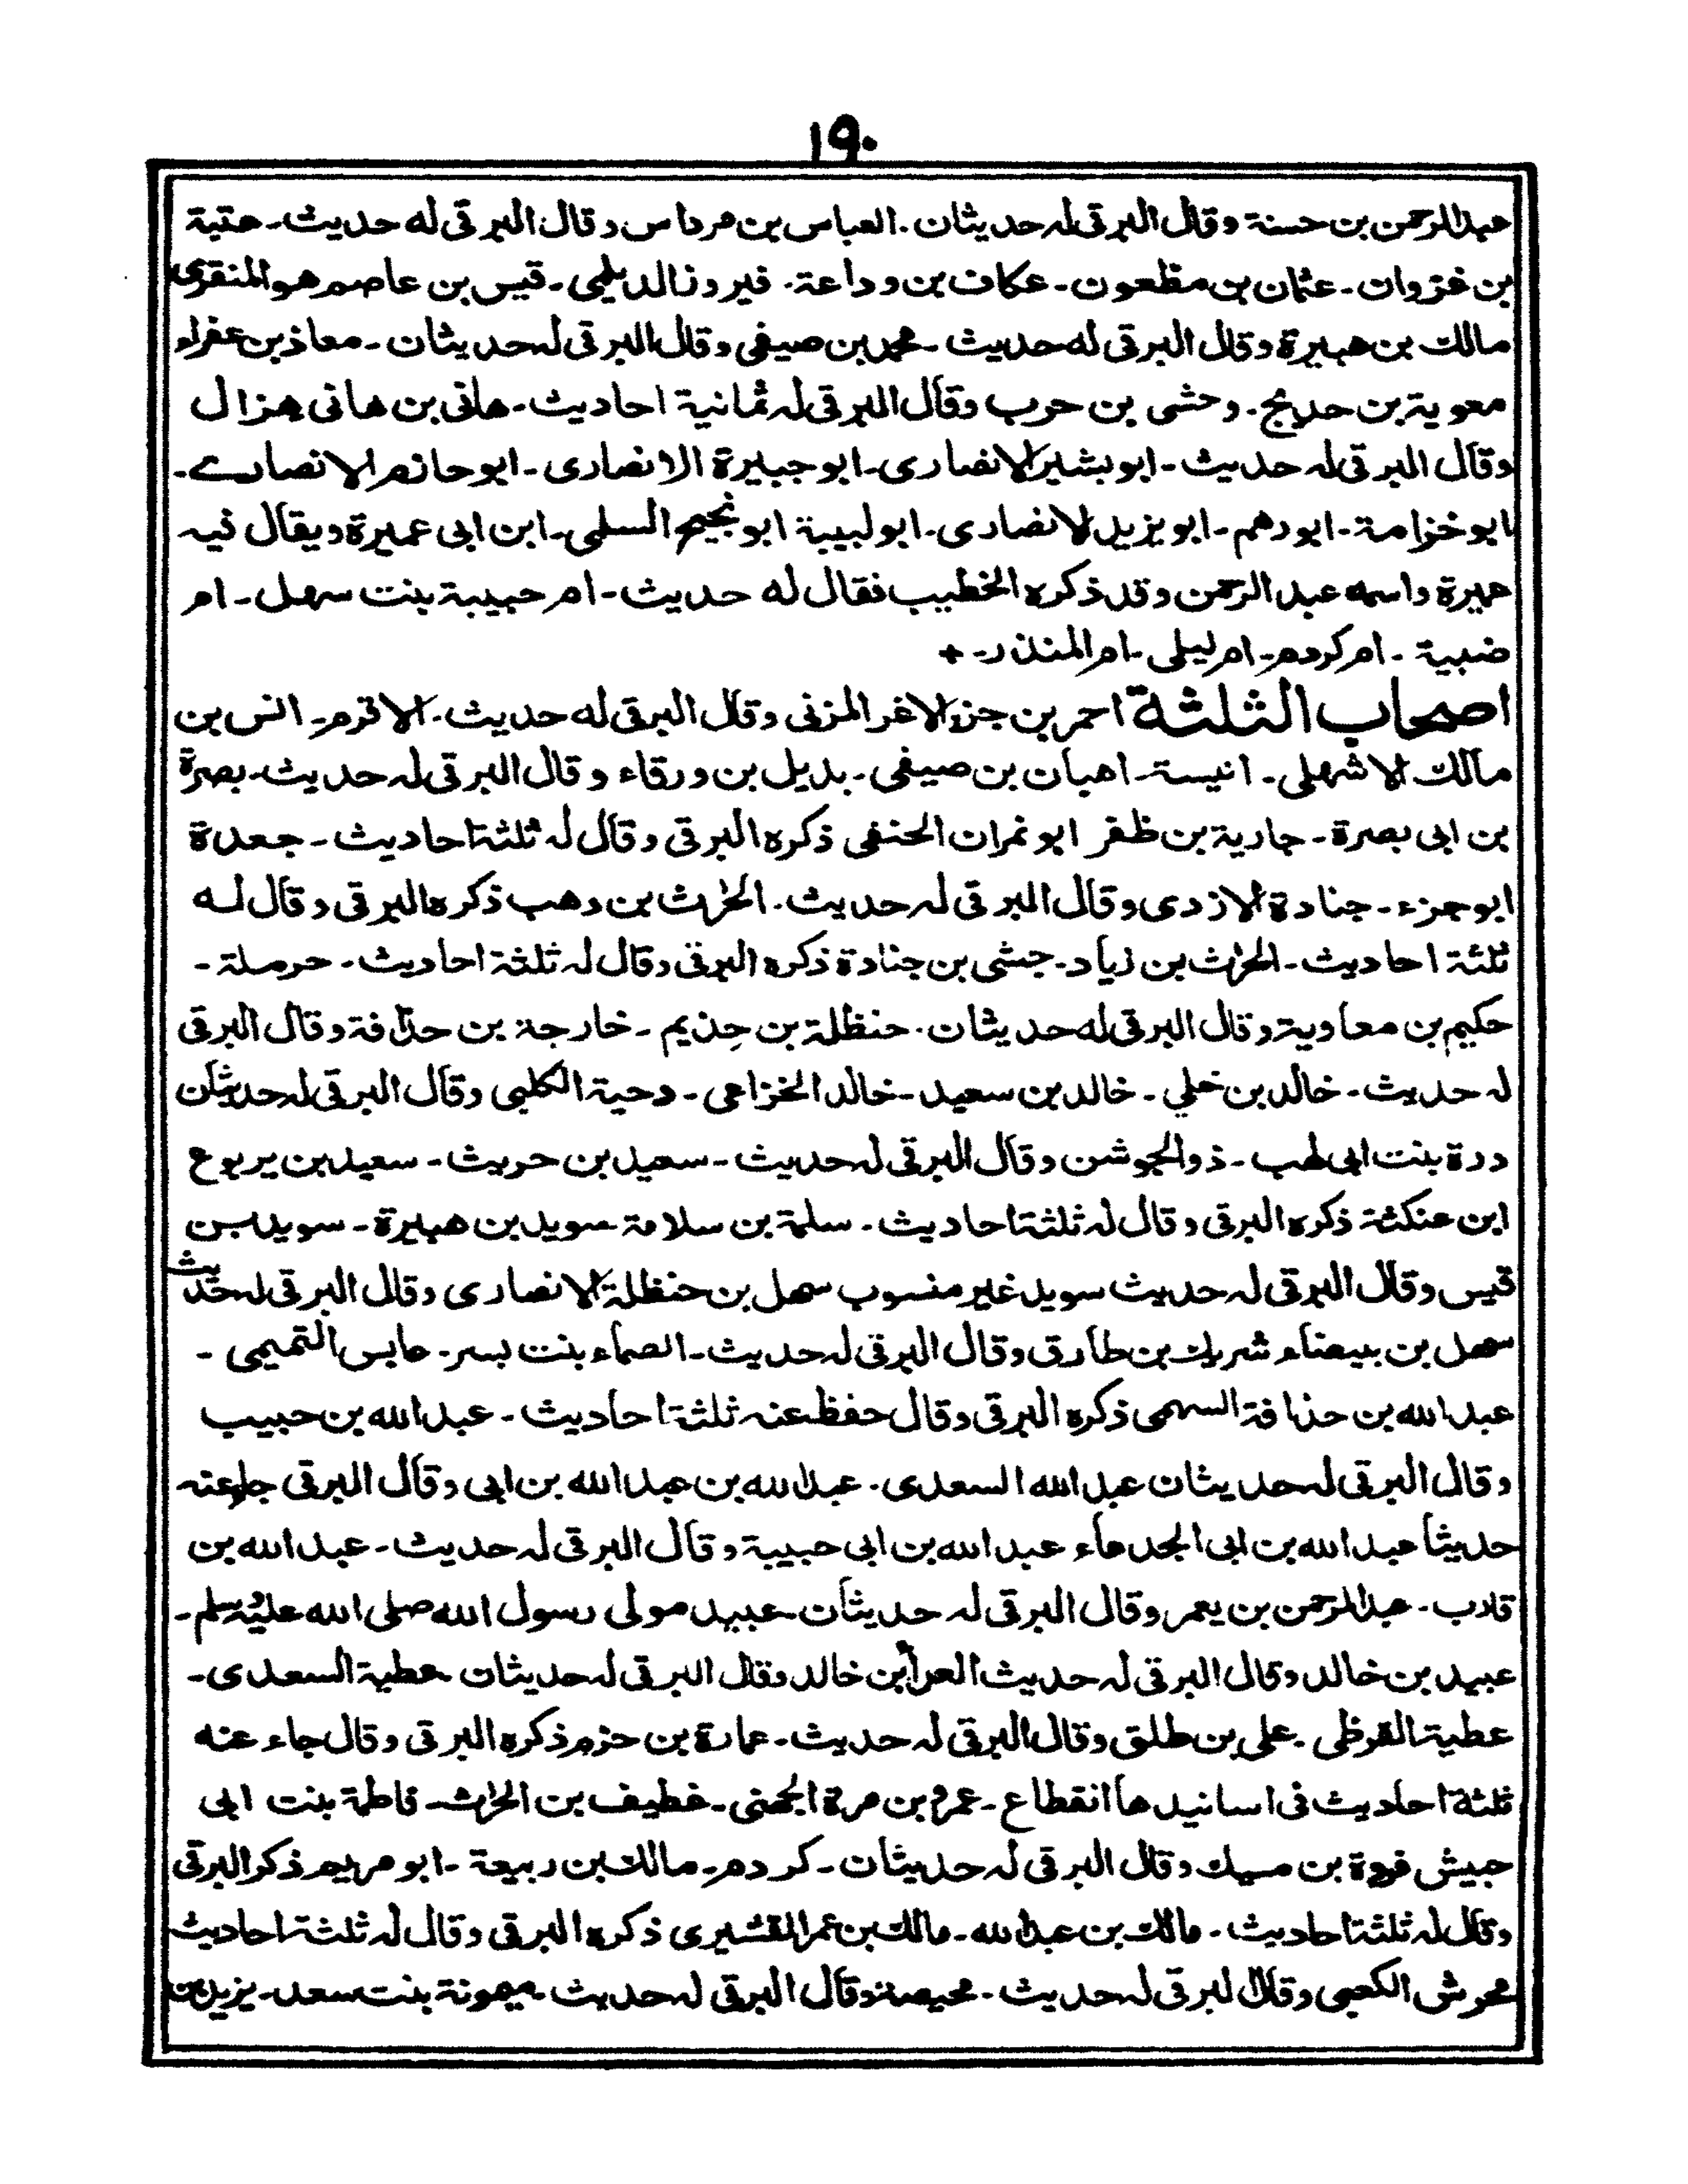 ١٩٠
عبدالرحمن بن حسنة وقال البرقی له حدیثان۔ العباس بن مرداس وقال البرقی له حدیث۔ عتبة
بن غزوان۔ عثمان بن مظعون۔ عکاف بن وداعة۔ فیروز الدیلمی۔ قیس بن عاصم هو المنقری
مالك بن هبیرة وقال البرقی له حدیث۔ محمد بن صیفی وقال البرقی له حدیثان۔ معاذ بن عفراء
معویة بن حدیج۔ وحشی بن حرب وقال البرقی له ثمانیة احادیث۔ هانی بن هانی هزال
وقال البرقی له حدیث۔ ابو بشیر الانصاری۔ ابو جبیرة الانصاری۔ ابو حازم الانصارے۔
ابو خزامة۔ ابو رهم۔ ابو یزید الانصاری۔ ابو لبیبة ابو نجیح السلمی۔ ابن ابی عمیرة ویقال فیه
عمیرة واسمه عبد الرحمن وقد ذکره الخطیب فقال له حدیث۔ ام حبیبة بنت سهل۔ ام
ضبیة۔ ام کردم۔ ام لیلی۔ ام المنذر۔ +
اصحاب الثلثة احمر بن جزء الاغر المزنی وقال البرقی له حدیث۔ الاقرم۔ انس بن
مالك الاشهلی۔ انیسة۔ اهبان بن صیفی۔ بدیل بن ورقاء وقال البرقی له حدیث۔ بصرة
بن ابی بصرة۔ جاریة بن ظفر ابو نمران الحنفی ذکره البرقی وقال له ثلثة احادیث۔ جعدة
ابو جزء۔ جنادة الازدی وقال البرقی له حدیث۔ الحٰرث بن وهب ذکره البرقی وقال له
ثلثة احادیث۔ الحٰرث بن زیاد۔ حبشی بن جنادة ذکره البرقی وقال له ثلثة احادیث۔ حرملة۔
حکیم بن معاویة وقال البرقی له حدیثان۔ حنظلة بن حذیم۔ خارجة بن حذافة وقال البرقی
له حدیث۔ خالد بن خلی۔ خالد بن سعید۔ خالد الخزاعی۔ دحیة الکلبی وقال البرقی له حدیثان
درة بنت ابی لهب۔ ذو الجوشن وقال البرقی له حدیث۔ سعید بن حریث۔ سعید بن یربوع
ابن عنکثة ذکره البرقی وقال له ثلثة احادیث۔ سلمة بن سلامة سوید بن هبیرة۔ سوید بن
قیس وقال البرقی له حدیث سوید غیر منسوب سهل بن حنظلة الانصاری وقال البرقی له حدیث
سهل بن بیضاء شریك بن طارق وقال البرقی له حدیث۔ الصماء بنت بسر۔ حابس التمیمی۔
عبد الله بن حذافة السهمی ذکره البرقی وقال حفظ عنه ثلثة احادیث۔ عبد الله بن حبیب
وقال البرقی له حدیثان عبد الله السعدی۔ عبد الله بن عبد الله بن ابی وقال البرقی جاء عنه
حدیثا عبد الله بن ابی الجدعاء عبد الله بن ابی حبیبة وقال البرقی له حدیث۔ عبد الله بن
قارب۔ عبد الرحمن بن یعمر وقال البرقی له حدیثان۔ عبید مولی رسول الله صلی الله علیه وسلم۔
عبید بن خالد وقال البرقی له حدیث العداء بن خالد وقال البرقی له حدیثان عطیة السعدی۔
عطیة القرظی۔ علی بن طلق وقال البرقی له حدیث۔ عمارة بن حزم ذکره البرقی وقال جاء عنه
ثلثة احادیث فی اسانیدها انقطاع۔ عمرو بن مرة الجهنی۔ غطیف بن الحٰرث۔ فاطمة بنت ابی
حبیش فروة بن مسیك وقال البرقی له حدیثان۔ کردم۔ مالك بن ربیعة۔ ابو مریم ذکر البرقی
وقال له ثلثة احادیث۔ مالك بن عبد الله۔ مالك بن عمر القشیری ذکره البرقی وقال له ثلثة احادیث
محرش الکعبی وقال البرقی له حدیث۔ محیصة وقال البرقی له حدیث۔ میمونة بنت سعد۔ یزید بن